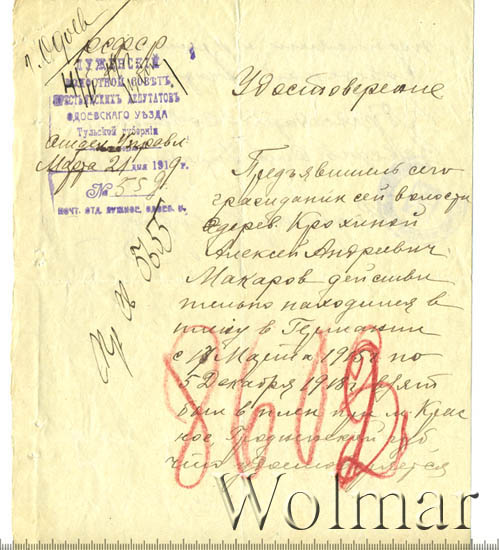 г. Одоев
РСФСР
ЛУЖИНСКИЙ
ВОЛОСТНОЙ СОВѢТЪ
КРЕСТЬЯНСКИХ ДЕПУТАТОВ
ОДОЕВСКОГО УѢЗДА
Тульской губернiи
Отдел Управл
Марта 21 дня 1919 г.
№ 559
ПОЧТ. ОТД. ЛУЖНОЕ, ОДОЕВ. У.
Удостоверение
Предъявитель сего
гражданин сей волости
дерев. Крохиной
Алексей Андреевич
Макаров действи
тельно находился в
плену в Германии
с 17 Марта 1915 г по
5 Декабря 1918 г. взят
был в плен при м. Крас
ное, Гродненской губ
что удостоверяется
8612
Wolmar